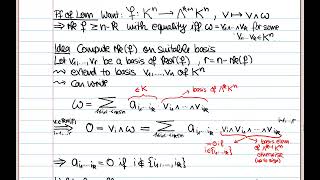 Pf of Lem Want: f: Kⁿ → Λᵏ⁺¹ Kⁿ, v ↦ v∧ω
⇒ rk(f) ≥ n-k with equality iff ω = v₁∧...∧vₖ for some
v₁,...,vₖ ∈ Kⁿ
Idea Compute rk(f) on suitable basis
Let v₁,...,vᵣ be a basis of ker(f), r = n - rk(f)
⇝ extend to basis v₁,...,vₙ of Kⁿ
⇝ Can write
∈ K
basis of Λᵏ Kⁿ
ω = Σ a_{i₁...iₖ} v_{i₁}∧...∧v_{iₖ}
⇒ 0 = vᵢ∧ω = Σ a_{i₁...iₖ} vᵢ∧v_{i₁}∧...∧v_{iₖ}
= 0 if i ∈ {i₁,...,iₖ}
basis elem of Λᵏ⁺¹ Kⁿ otherwise
⇒ a_{i₁...iₖ} = 0 if i ∉ {i₁,...,iₖ}